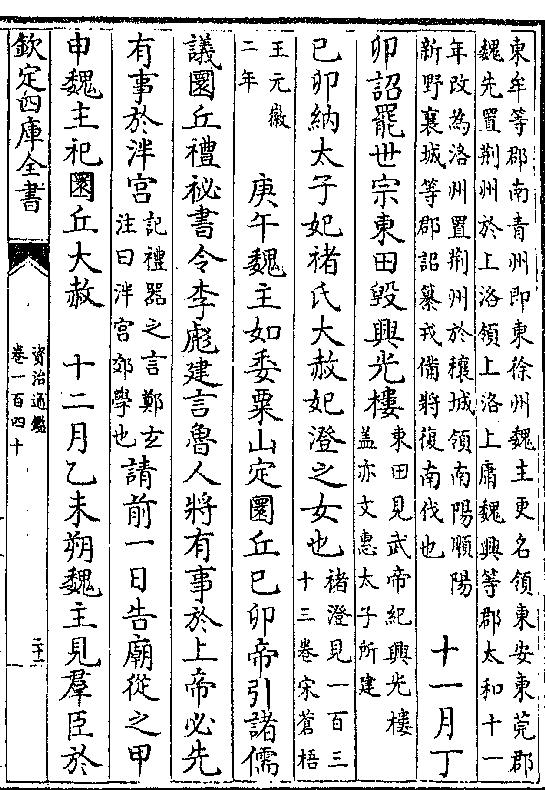 東牟等郡南青州即東徐州魏主更名領東安東莞郡
魏先置荆州於上洛領上洛上庸魏興等郡太和十一
年改為洛州置荆州於穰城領南陽順陽
新野襄城等郡詔纂戎備將復南伐也
十一月丁
卯詔罷世宗東田毀興光樓
東田見武帝紀興光樓
盖亦文惠太子所建
己卯納太子妃褚氏大赦妃澄之女也
褚澄見一百三
十三卷宋蒼梧
王元徽
二年
庚午魏主如委粟山定圜丘己卯帝引諸儒
議圜丘禮祕書令李彪建言魯人將有事於上帝必先
有事於泮宫
記禮器之言鄭玄
注曰泮宫郊學也
請前一日告廟從之甲
申魏主祀圜丘大赦 十二月乙未朔魏主見羣臣於
欽定四庫全書
資治通鑑
卷一百四十
二十一